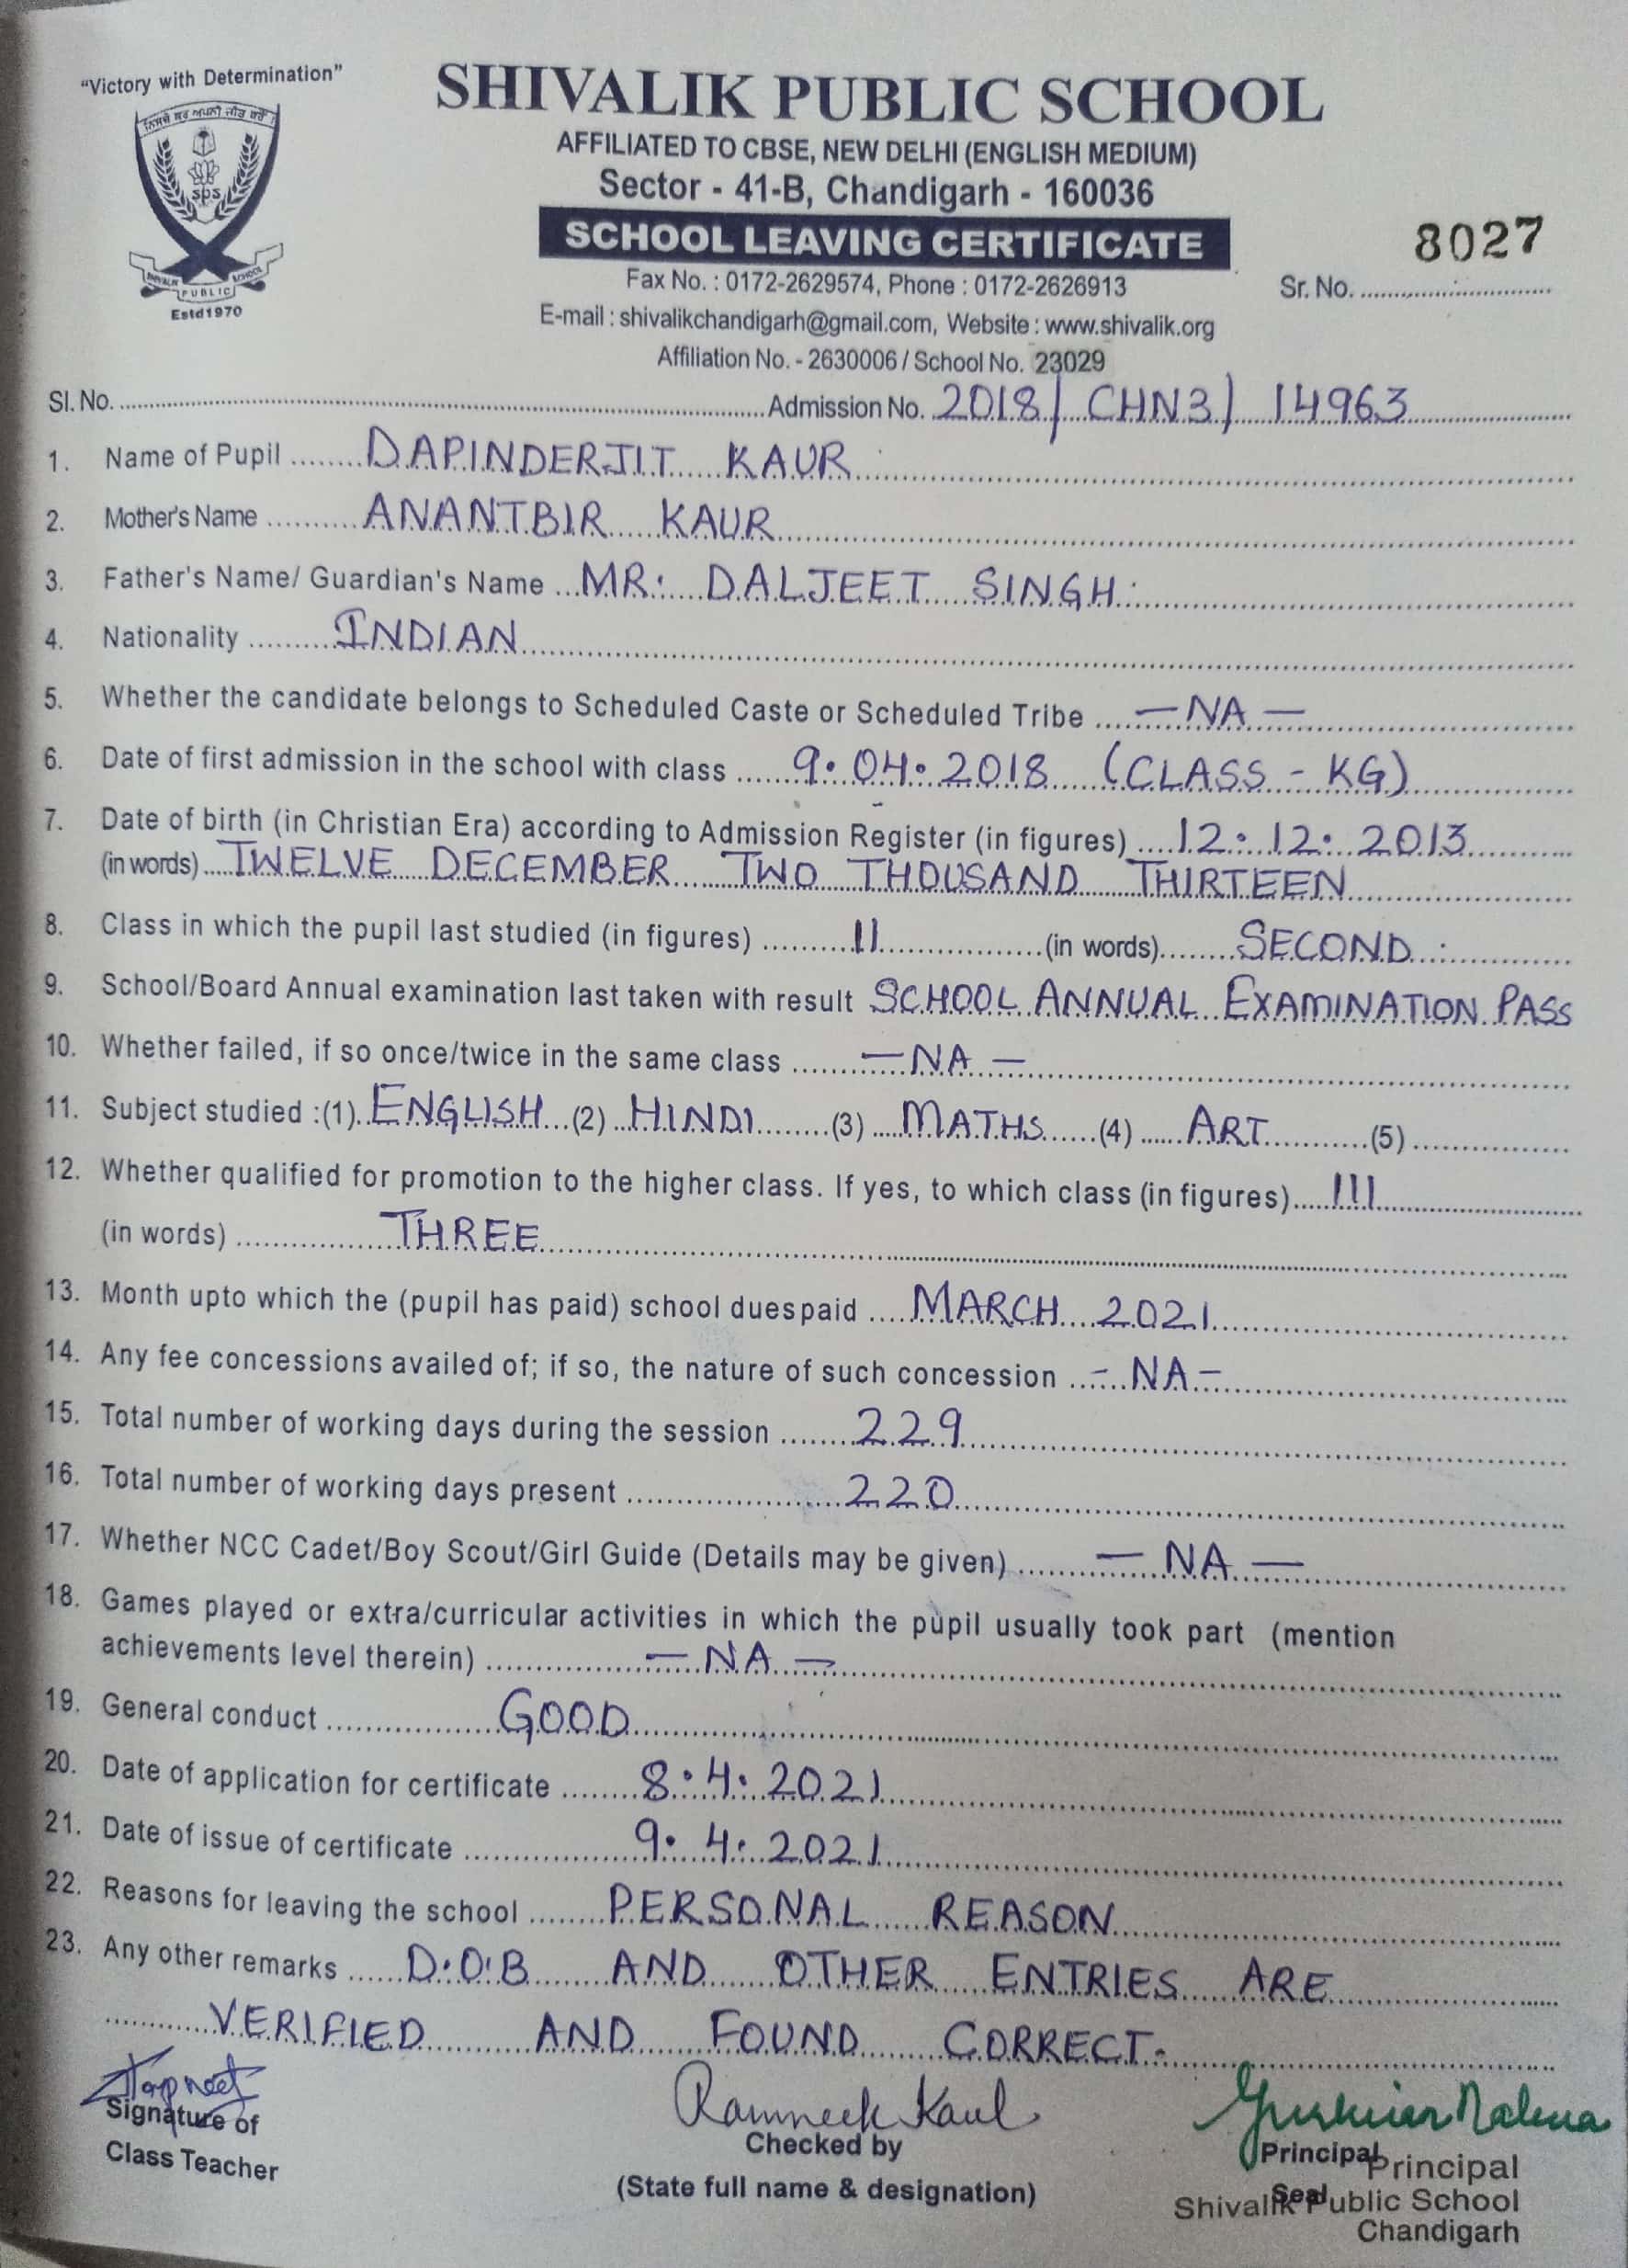 "Victory with Determination"
SHIVALIK PUBLIC SCHOOL
AFFILIATED TO CBSE, NEW DELHI (ENGLISH MEDIUM)
Sector - 41-B, Chandigarh - 160036
SCHOOL LEAVING CERTIFICATE
8027
sps
SHIVALIK PUBLIC SCHOOL
Estd1970
Fax No. : 0172-2629574, Phone : 0172-2626913
Sr. No.
E-mail : shivalikchandigarh@gmail.com, Website : www.shivalik.org
Affiliation No. - 2630006 / School No. 23029
Sl. No. Admission No. 2018/ CHN3/ 14963
1. Name of Pupil DAPINDERJIT KAUR
2. Mother's Name ANANTBIR KAUR
3. Father's Name/ Guardian's Name MR. DALJEET SINGH
4. Nationality INDIAN
5. Whether the candidate belongs to Scheduled Caste or Scheduled Tribe — NA —
6. Date of first admission in the school with class 9.04.2018 (CLASS - KG)
7. Date of birth (in Christian Era) according to Admission Register (in figures) 12.12.2013
(in words) TWELVE DECEMBER TWO THOUSAND THIRTEEN
8. Class in which the pupil last studied (in figures) II (in words) SECOND
9. School/Board Annual examination last taken with result SCHOOL ANNUAL EXAMINATION PASS
10. Whether failed, if so once/twice in the same class — NA —
11. Subject studied :(1) ENGLISH (2) HINDI (3) MATHS (4) ART (5)
12. Whether qualified for promotion to the higher class. If yes, to which class (in figures) III
(in words) THREE
13. Month upto which the (pupil has paid) school duespaid MARCH 2021
14. Any fee concessions availed of; if so, the nature of such concession - NA -
15. Total number of working days during the session 229
16. Total number of working days present 220
17. Whether NCC Cadet/Boy Scout/Girl Guide (Details may be given) — NA —
18. Games played or extra/curricular activities in which the pupil usually took part (mention
achievements level therein) — NA —
19. General conduct GOOD
20. Date of application for certificate 8.4.2021
21. Date of issue of certificate 9.4.2021
22. Reasons for leaving the school PERSONAL REASON
23. Any other remarks D.O.B AND OTHER ENTRIES ARE
VERIFIED AND FOUND CORRECT.
Ramneek Kaul
Signature of
Class Teacher
Checked by
(State full name & designation)
Principal
Seal
Principal
Shivalik Public School
Chandigarh